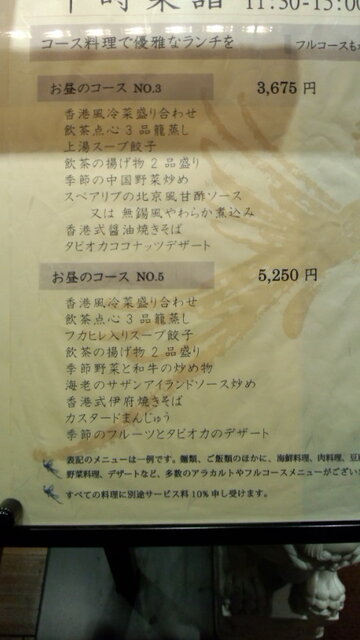 11:30-15:00
コース料理で優雅なランチを
フルコースも
お昼のコース NO.3 3,675 円
香港風冷菜盛り合わせ
飲茶点心 3 品籠蒸し
上湯スープ餃子
飲茶の揚げ物 2 品盛り
季節の中国野菜炒め
スペアリブの北京風甘酢ソース
又は 無錫風やわらか煮込み
香港式醤油焼きそば
タピオカココナッツデザート
お昼のコース NO.5 5,250 円
香港風冷菜盛り合わせ
飲茶点心 3 品籠蒸し
フカヒレ入りスープ餃子
飲茶の揚げ物 2 品盛り
季節野菜と和牛の炒め物
海老のサザンアイランドソース炒め
香港式伊府焼きそば
カスタードまんじゅう
季節のフルーツとタピオカのデザート
表記のメニューは一例です。麺類、ご飯類のほかに、海鮮料理、肉料理、豆
野菜料理、デザートなど、多数のアラカルトやフルコースメニューがござい
すべての料理に別途サービス料 10% 申し受けます。